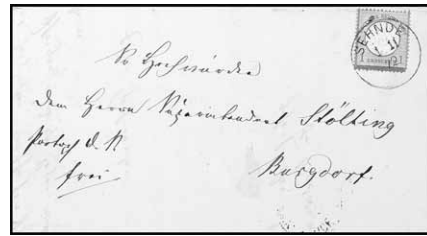 SEHNDE
1 11
12
1 1
Sr Hochwürden
dem Herrn Superintendent Stölting
frei
Burgdorf.